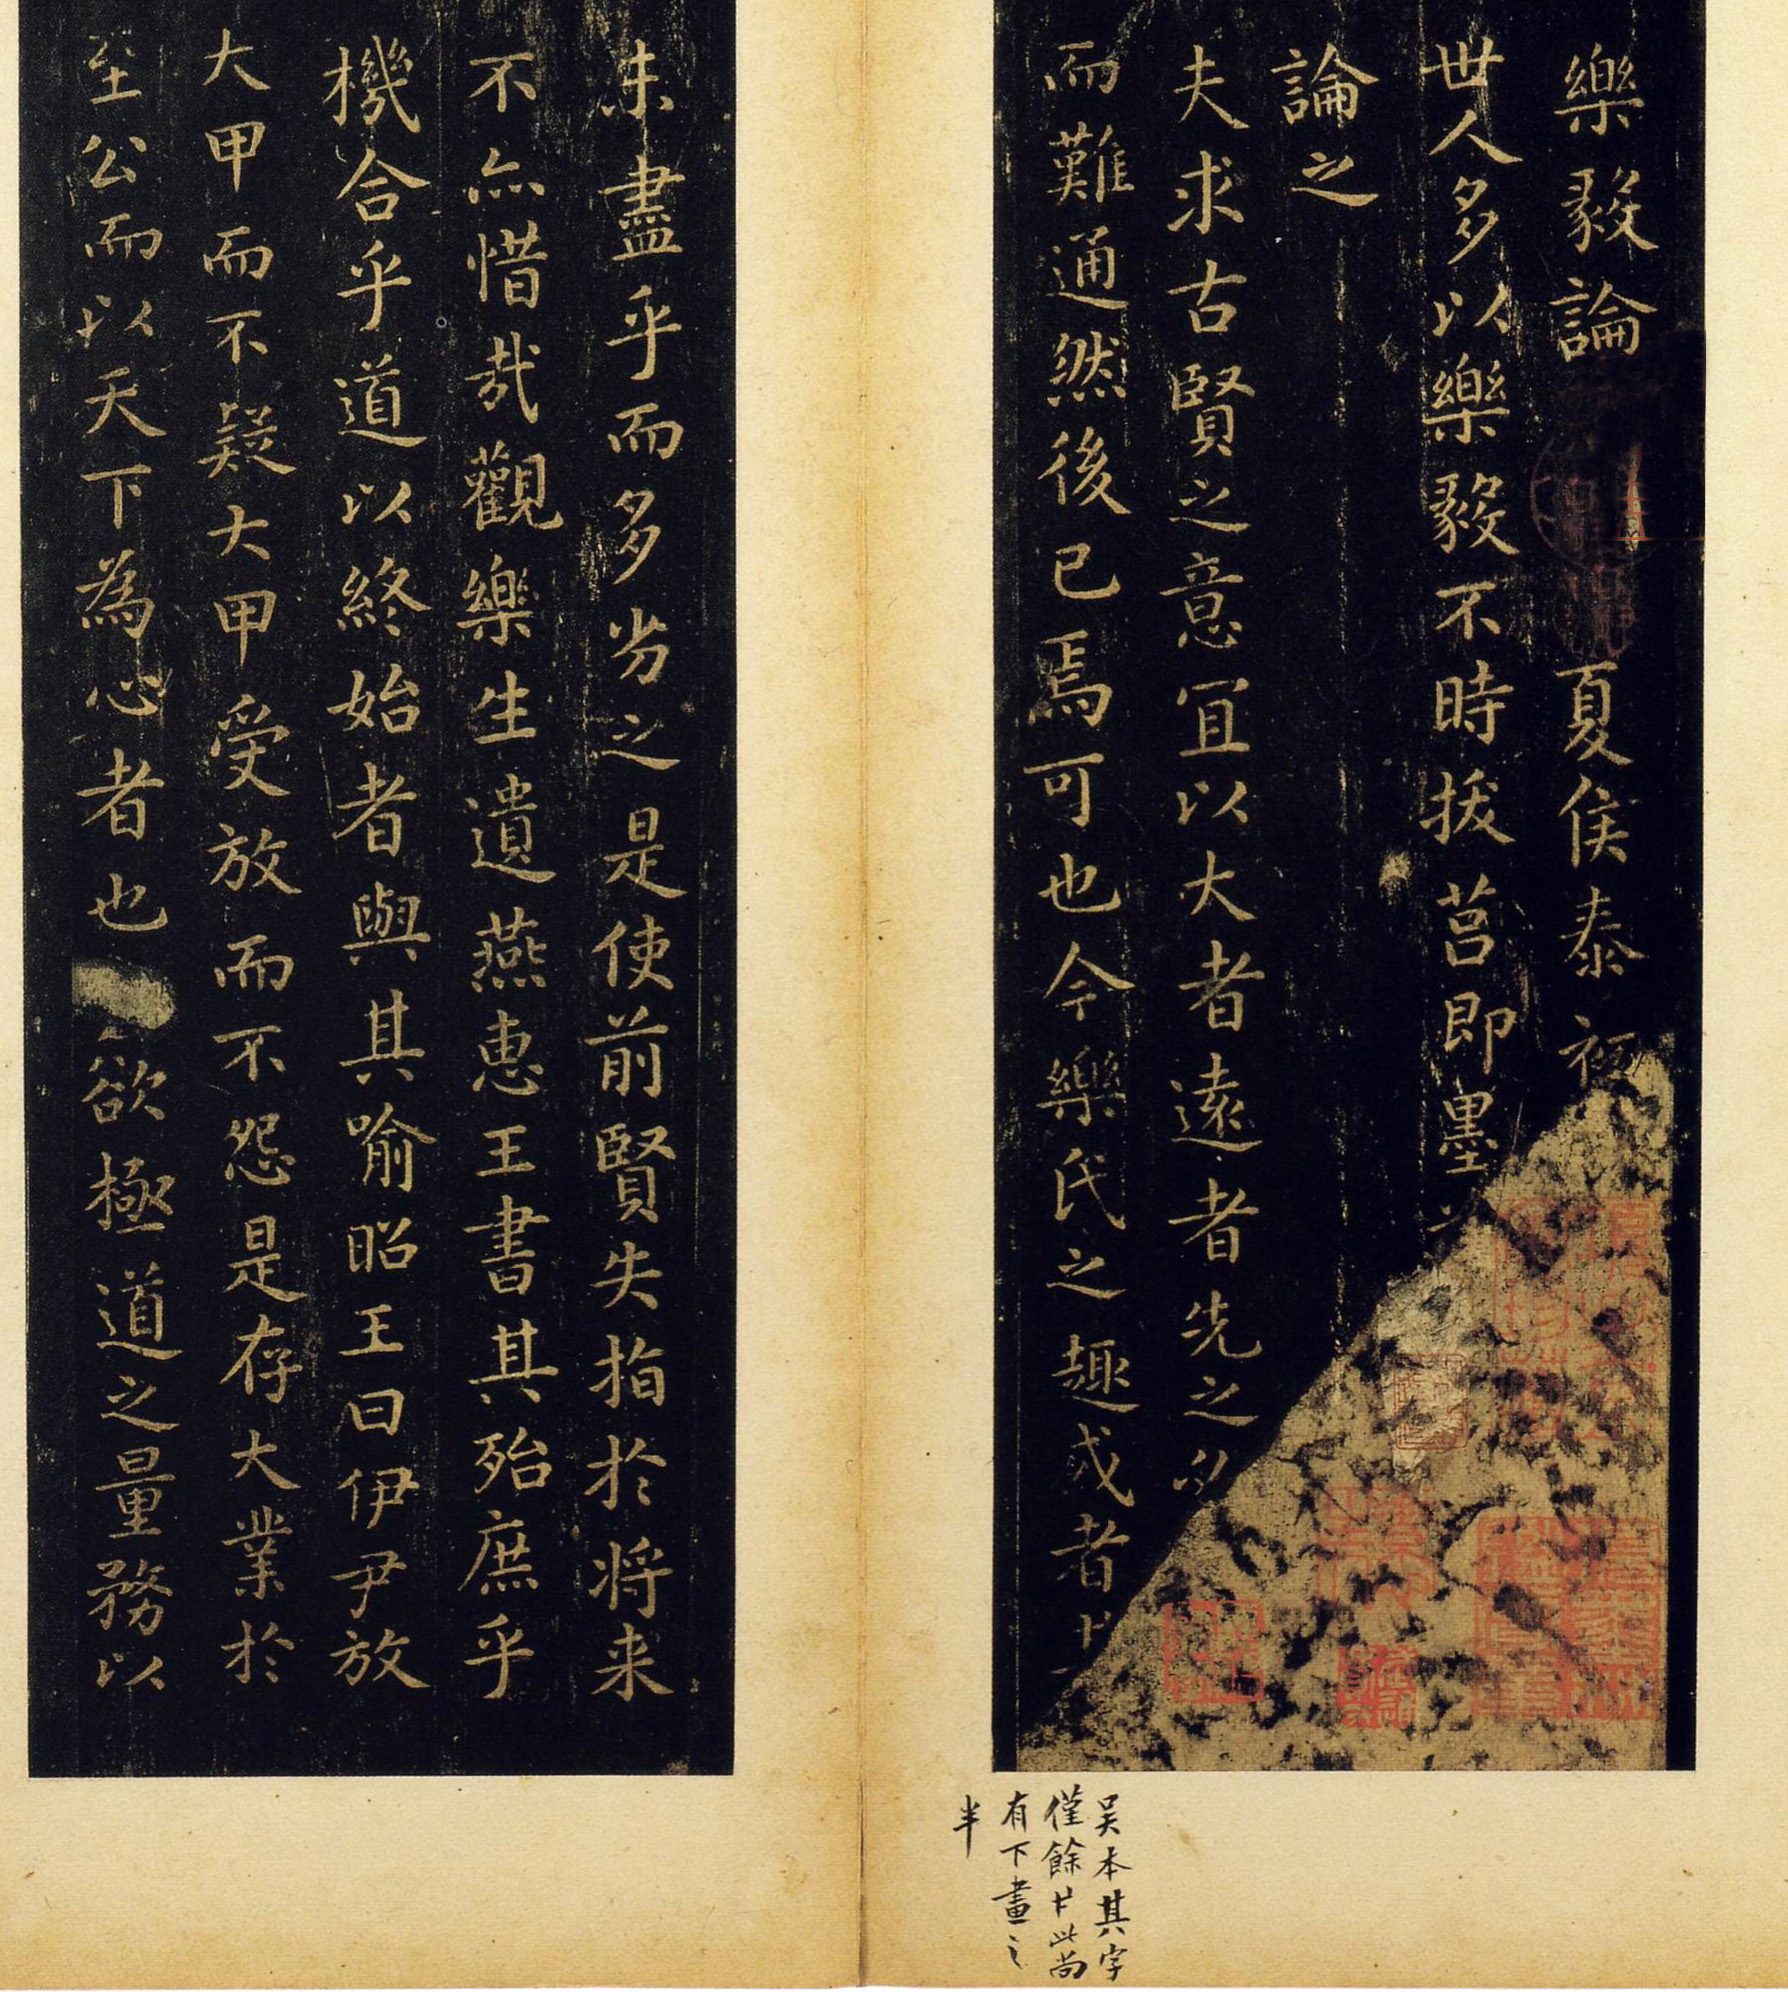 樂毅論 夏侯泰初
世人多以樂毅不時拔莒即墨
論之
夫求古賢之意冝以大者遠者先之必
而難通然後已焉可也今樂氏之趣或者
未盡乎而多劣之是使前賢失指於将来
不亦惜哉觀樂生遺燕惠王書其殆庶乎
機合乎道以終始者與其喻昭王曰伊尹放
大甲而不疑大甲受放而不怨是存大業於
至公而以天下為心者也 欲極道之量務以
吴本其字
僅餘此尚
有下畫之
半